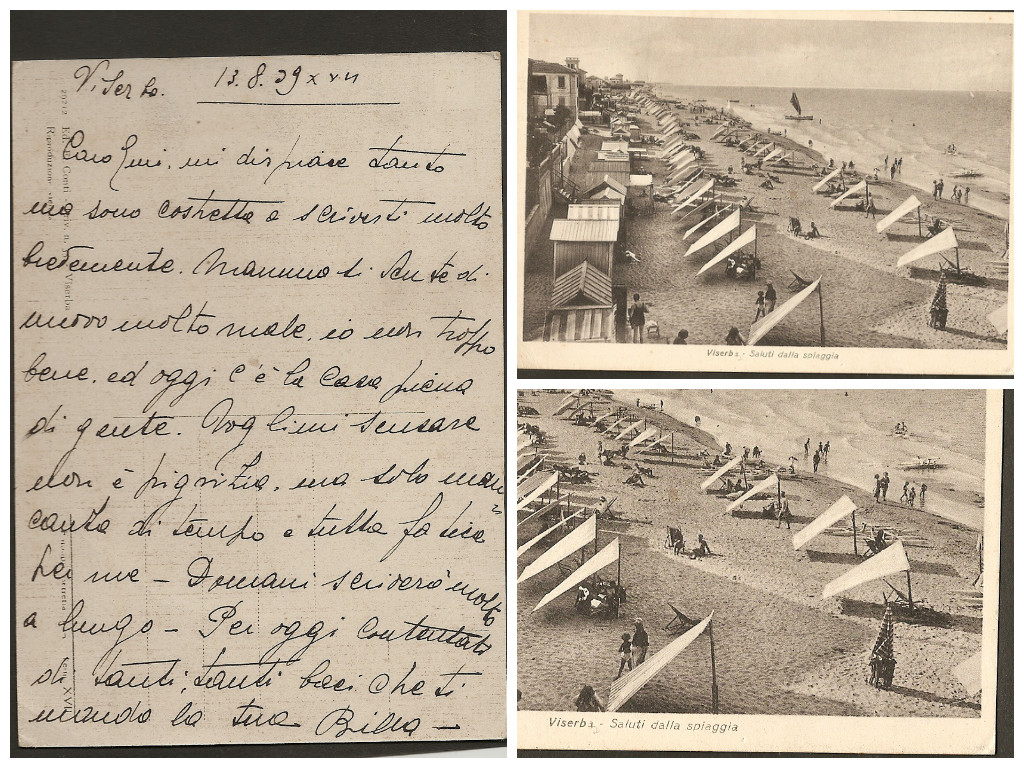 Viserba. 13.8.39 XVII
Caro Gui, mi dispiace tanto
ma sono costretta a scriverti molto
brevemente. Mamma si sente di
nuovo molto male, io non troppo
bene, ed oggi c'è la casa piena
di gente. Voglimi scusare
non è pigrizia, ma solo man=
canza di tempo e tutta fatica
per me - Domani scriverò molto
a lungo - Per oggi contentati
di tanti, tanti baci che ti
mando la tua Billa -
Viserba - Saluti dalla spiaggia
Viserba - Saluti dalla spiaggia